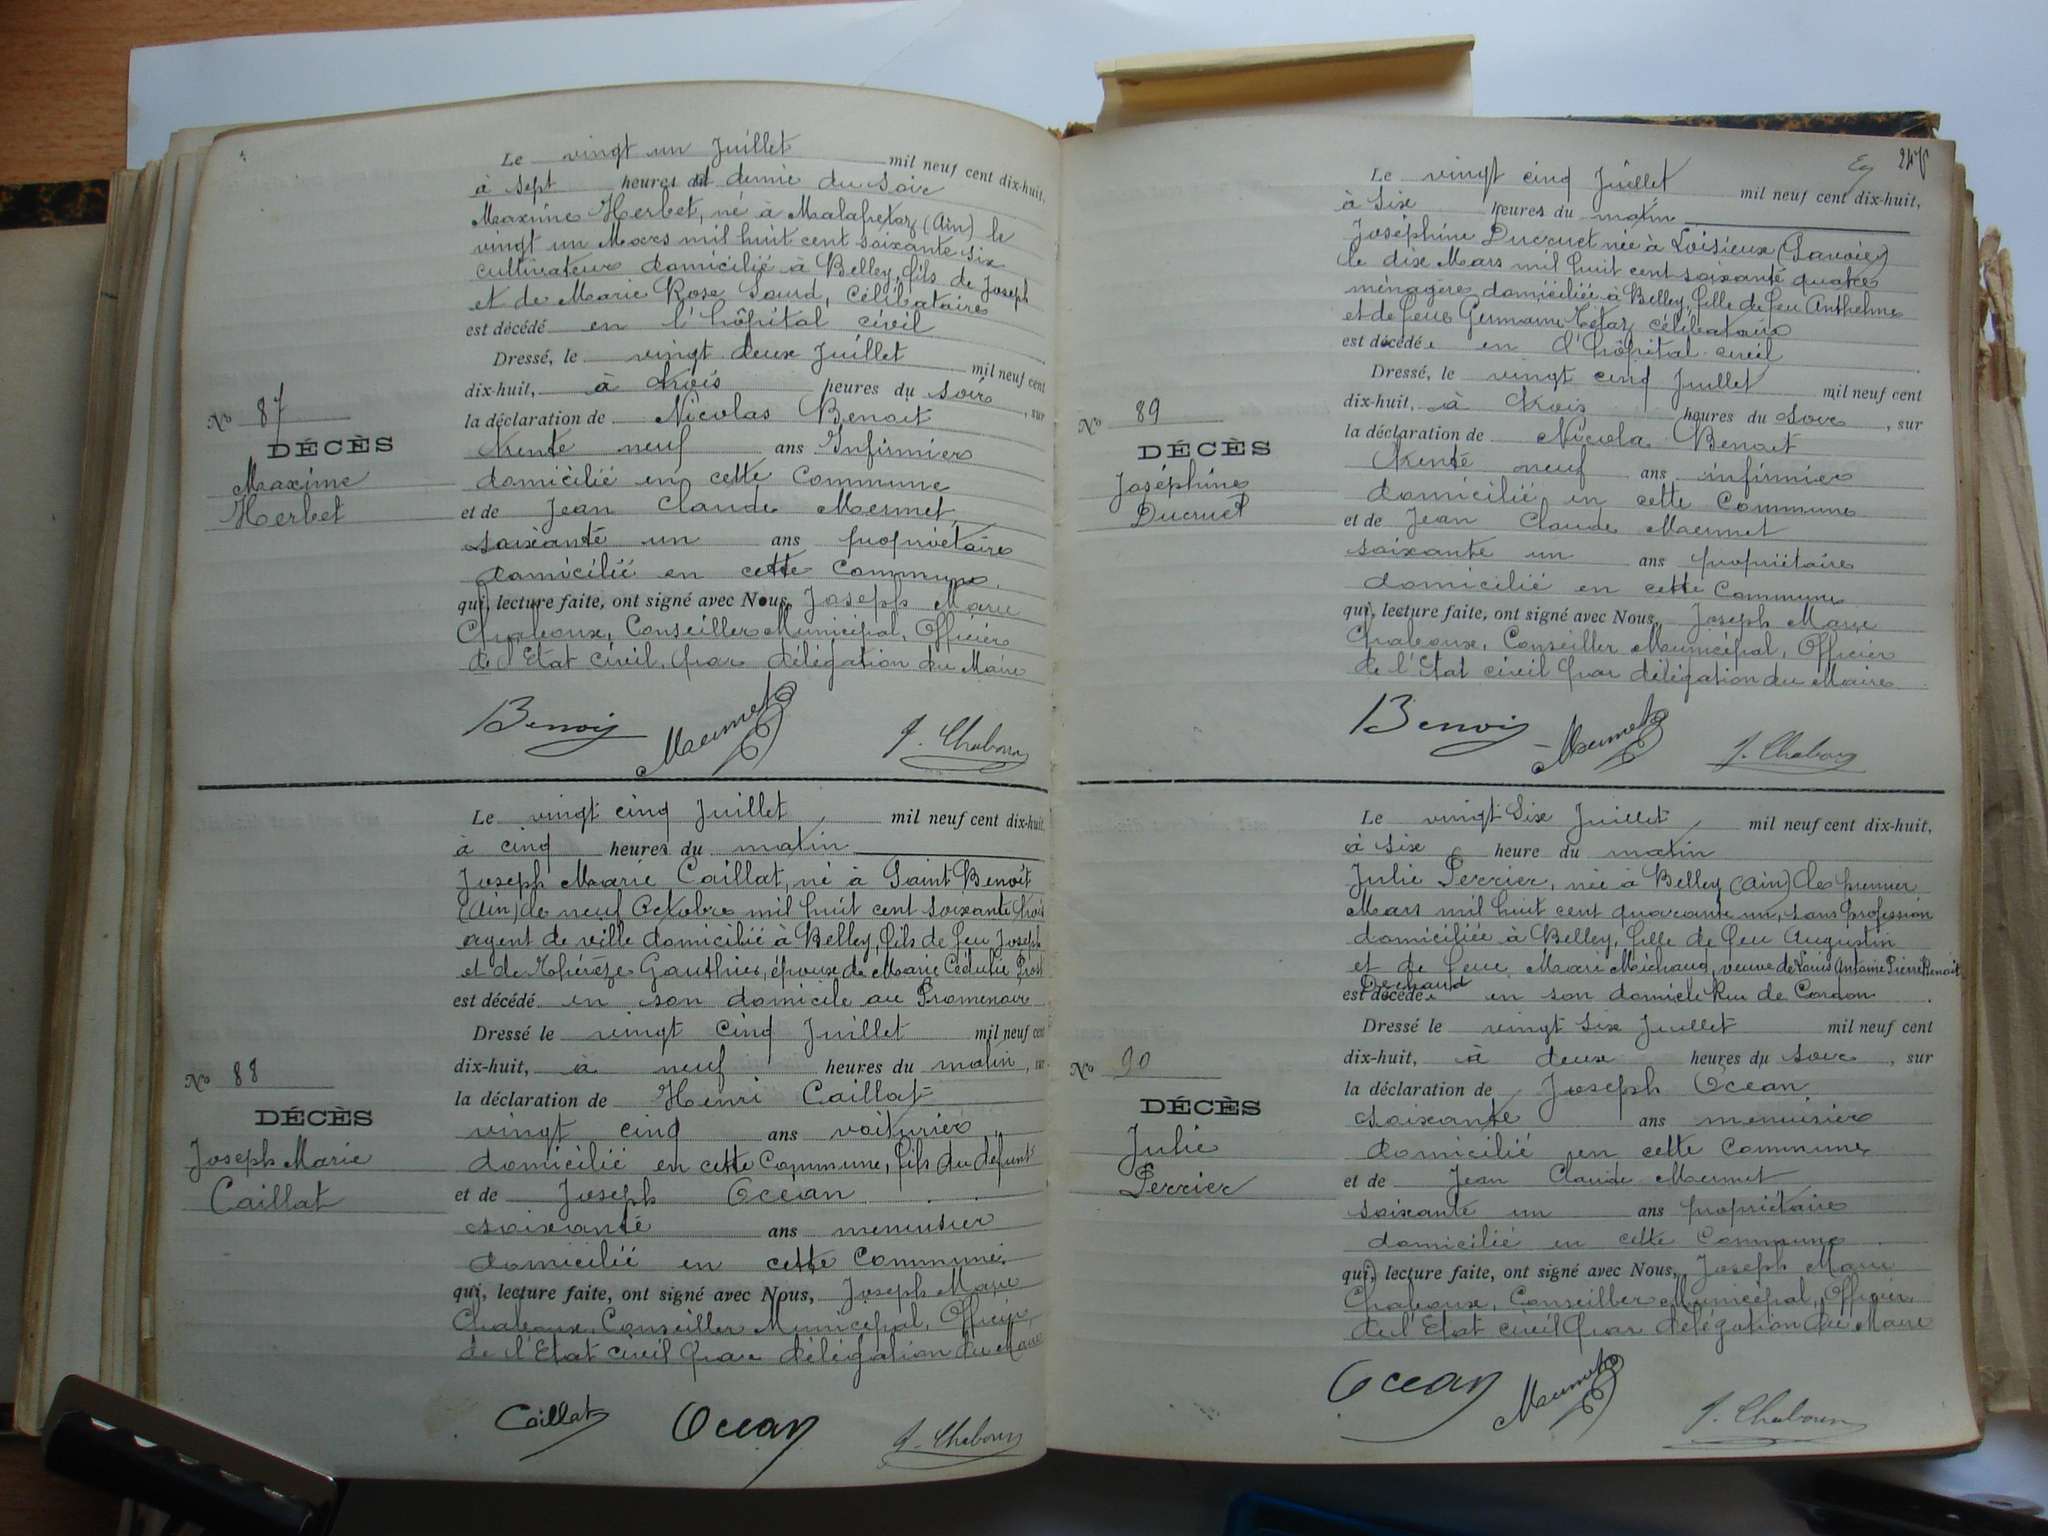 Le vingt un Juillet mil neuf cent dix-huit,
à sept heures et demie du soir
Maxime Herbet, né à Malafretaz (Ain) le
vingt un Mars mil huit cent soixante six
cultivateur domicilié à Belley, fils de Joseph
et de Marie Rose Saud, célibataire
est décédé en l'hôpital civil
Dressé, le vingt deux Juillet mil neuf cent
dix-huit, à trois heures du soir, sur
la déclaration de Nicolas Benoit
trente neuf ans Infirmier
domicilié en cette Commune
et de Jean Claude Mermet
soixante un ans propriétaire
domicilié en cette Commune
qui, lecture faite, ont signé avec Nous, Joseph Marie
Chaboux, Conseiller Municipal, Officier
de l'Etat civil, par délégation du Maire
No 87
DÉCÈS
Maxime
Herbet
Benoit Mermet J. Chaboux
Le vingt cinq Juillet mil neuf cent dix-huit,
à cinq heures du matin
Joseph Marie Caillat, né à Saint Benoît
(Ain) le neuf Octobre mil huit cent soixante trois
agent de ville domicilié à Belley, fils de feu Joseph
et de Thérèze Gauthier, époux de Marie Cédulie Prost
est décédé en son domicile au Promenoir
Dressé le vingt cinq Juillet mil neuf cent
dix-huit, à neuf heures du matin, sur
la déclaration de Henri Caillat
vingt cinq ans voiturier
domicilié en cette Commune, fils du défunt
et de Joseph Océan
soixante ans menuisier
domicilié en cette Commune
qui, lecture faite, ont signé avec Nous, Joseph Marie
Chaboux, Conseiller Municipal, Officier
de l'Etat civil par délégation du Maire
No 88
DÉCÈS
Joseph Marie
Caillat
Caillat Océan J. Chaboux
Le vingt cinq Juillet mil neuf cent dix-huit,
à six heures du matin
Joséphine Ducruet née à Loisieux (Savoie)
le dix Mars mil huit cent soixante quatre
ménagère domiciliée à Belley, fille de feu Anthelme
et de feue Germaine Tétaz célibataire
est décédée en l'hôpital civil
Dressé, le vingt cinq Juillet mil neuf cent
dix-huit, à trois heures du soir, sur
la déclaration de Nicolas Benoit
trente neuf ans infirmier
domicilié en cette Commune
et de Jean Claude Mermet
soixante un ans propriétaire
domicilié en cette Commune
qui, lecture faite, ont signé avec Nous, Joseph Marie
Chaboux, Conseiller Municipal, Officier
de l'Etat civil par délégation du Maire
No 89
DÉCÈS
Joséphine
Ducruet
Benoit Mermet J. Chaboux
Le vingt Six Juillet mil neuf cent dix-huit,
à six heure du matin
Julie Perrier, née à Belley (Ain) le premier
Mars mil huit cent quarante un, sans profession
domiciliée à Belley, fille de feu Augustin
et de feue Marie Michaud, veuve de Louis Antoine Pierre Benoit
est décédée en son domicile Rue de Cordon
Dressé le vingt Six Juillet mil neuf cent
dix-huit, à deux heures du soir, sur
la déclaration de Joseph Océan
soixante ans menuisier
domicilié en cette Commune
et de Jean Claude Mermet
soixante un ans propriétaire
domicilié en cette Commune
qui, lecture faite, ont signé avec Nous, Joseph Marie
Chaboux, Conseiller Municipal, Officier
de l'Etat civil par délégation du Maire
No 90
DÉCÈS
Julie
Perrier
Océan Mermet J. Chaboux